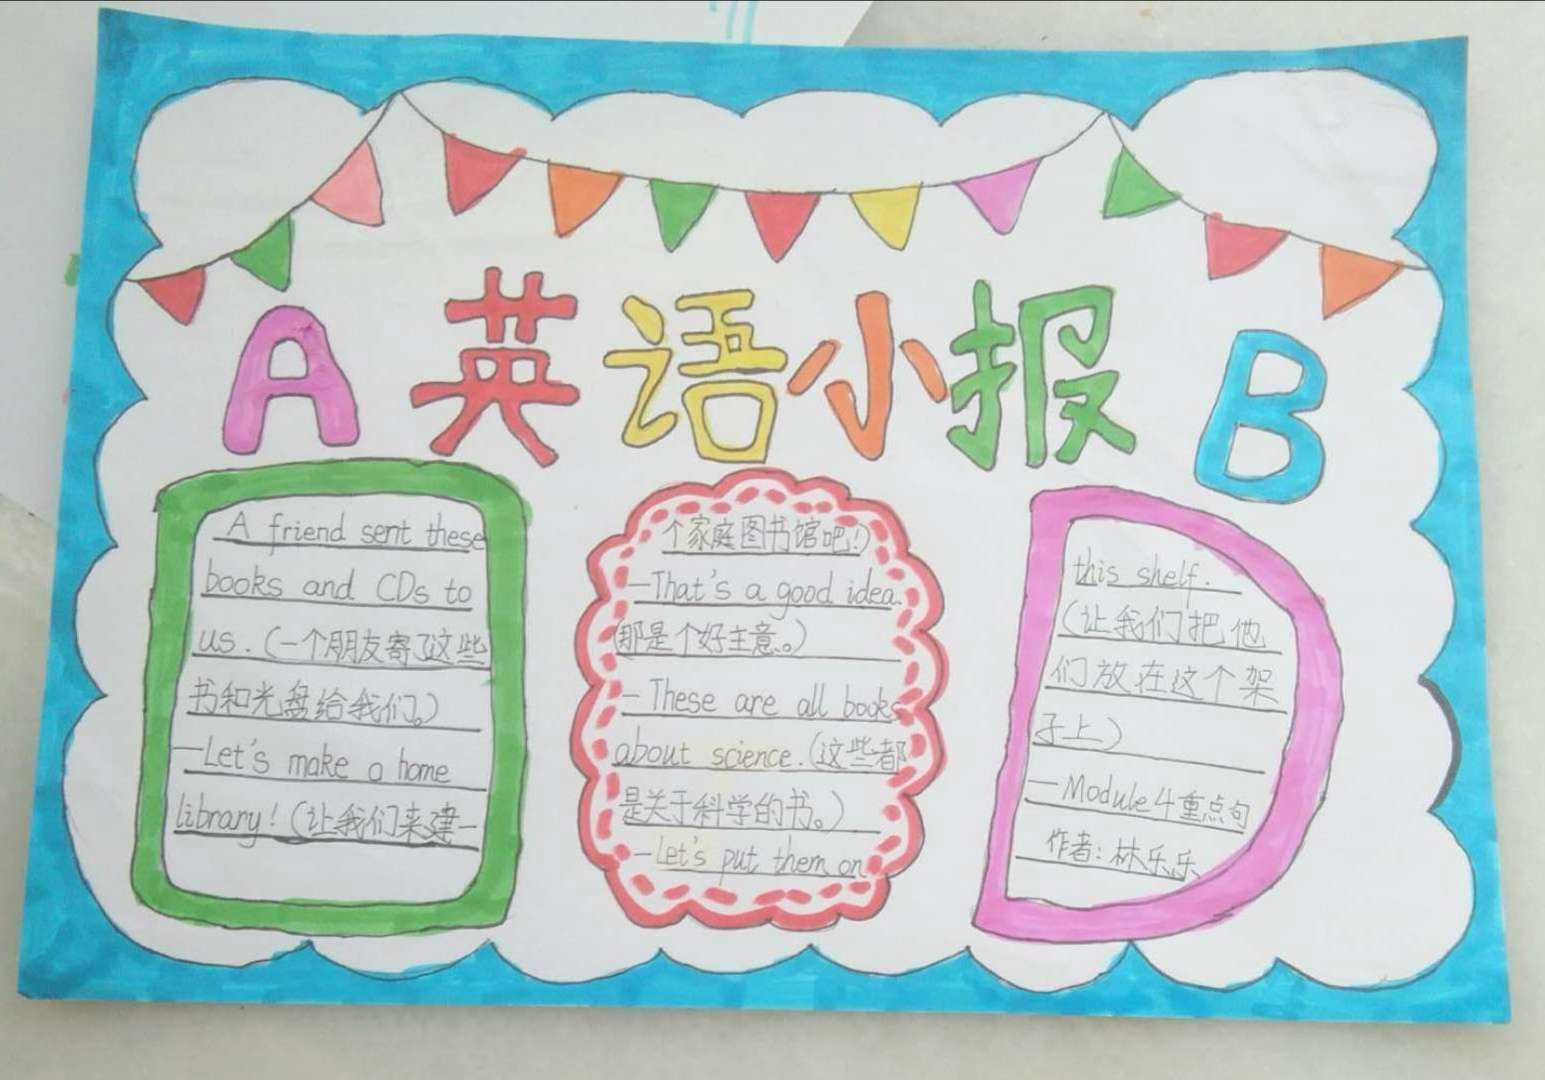 A 英语小报 B
A friend sent these
books and CDs to
us.(一个朋友寄了这些
书和光盘给我们。)
—Let's make a home
library!(让我们来建一
个家庭图书馆吧!)
—That's a good idea.
(那是个好主意。)
—These are all books
about science.(这些都
是关于科学的书。)
—Let's put them on
this shelf.
(让我们把他
们放在这个架
子上)
—Module4重点句
作者:林乐乐